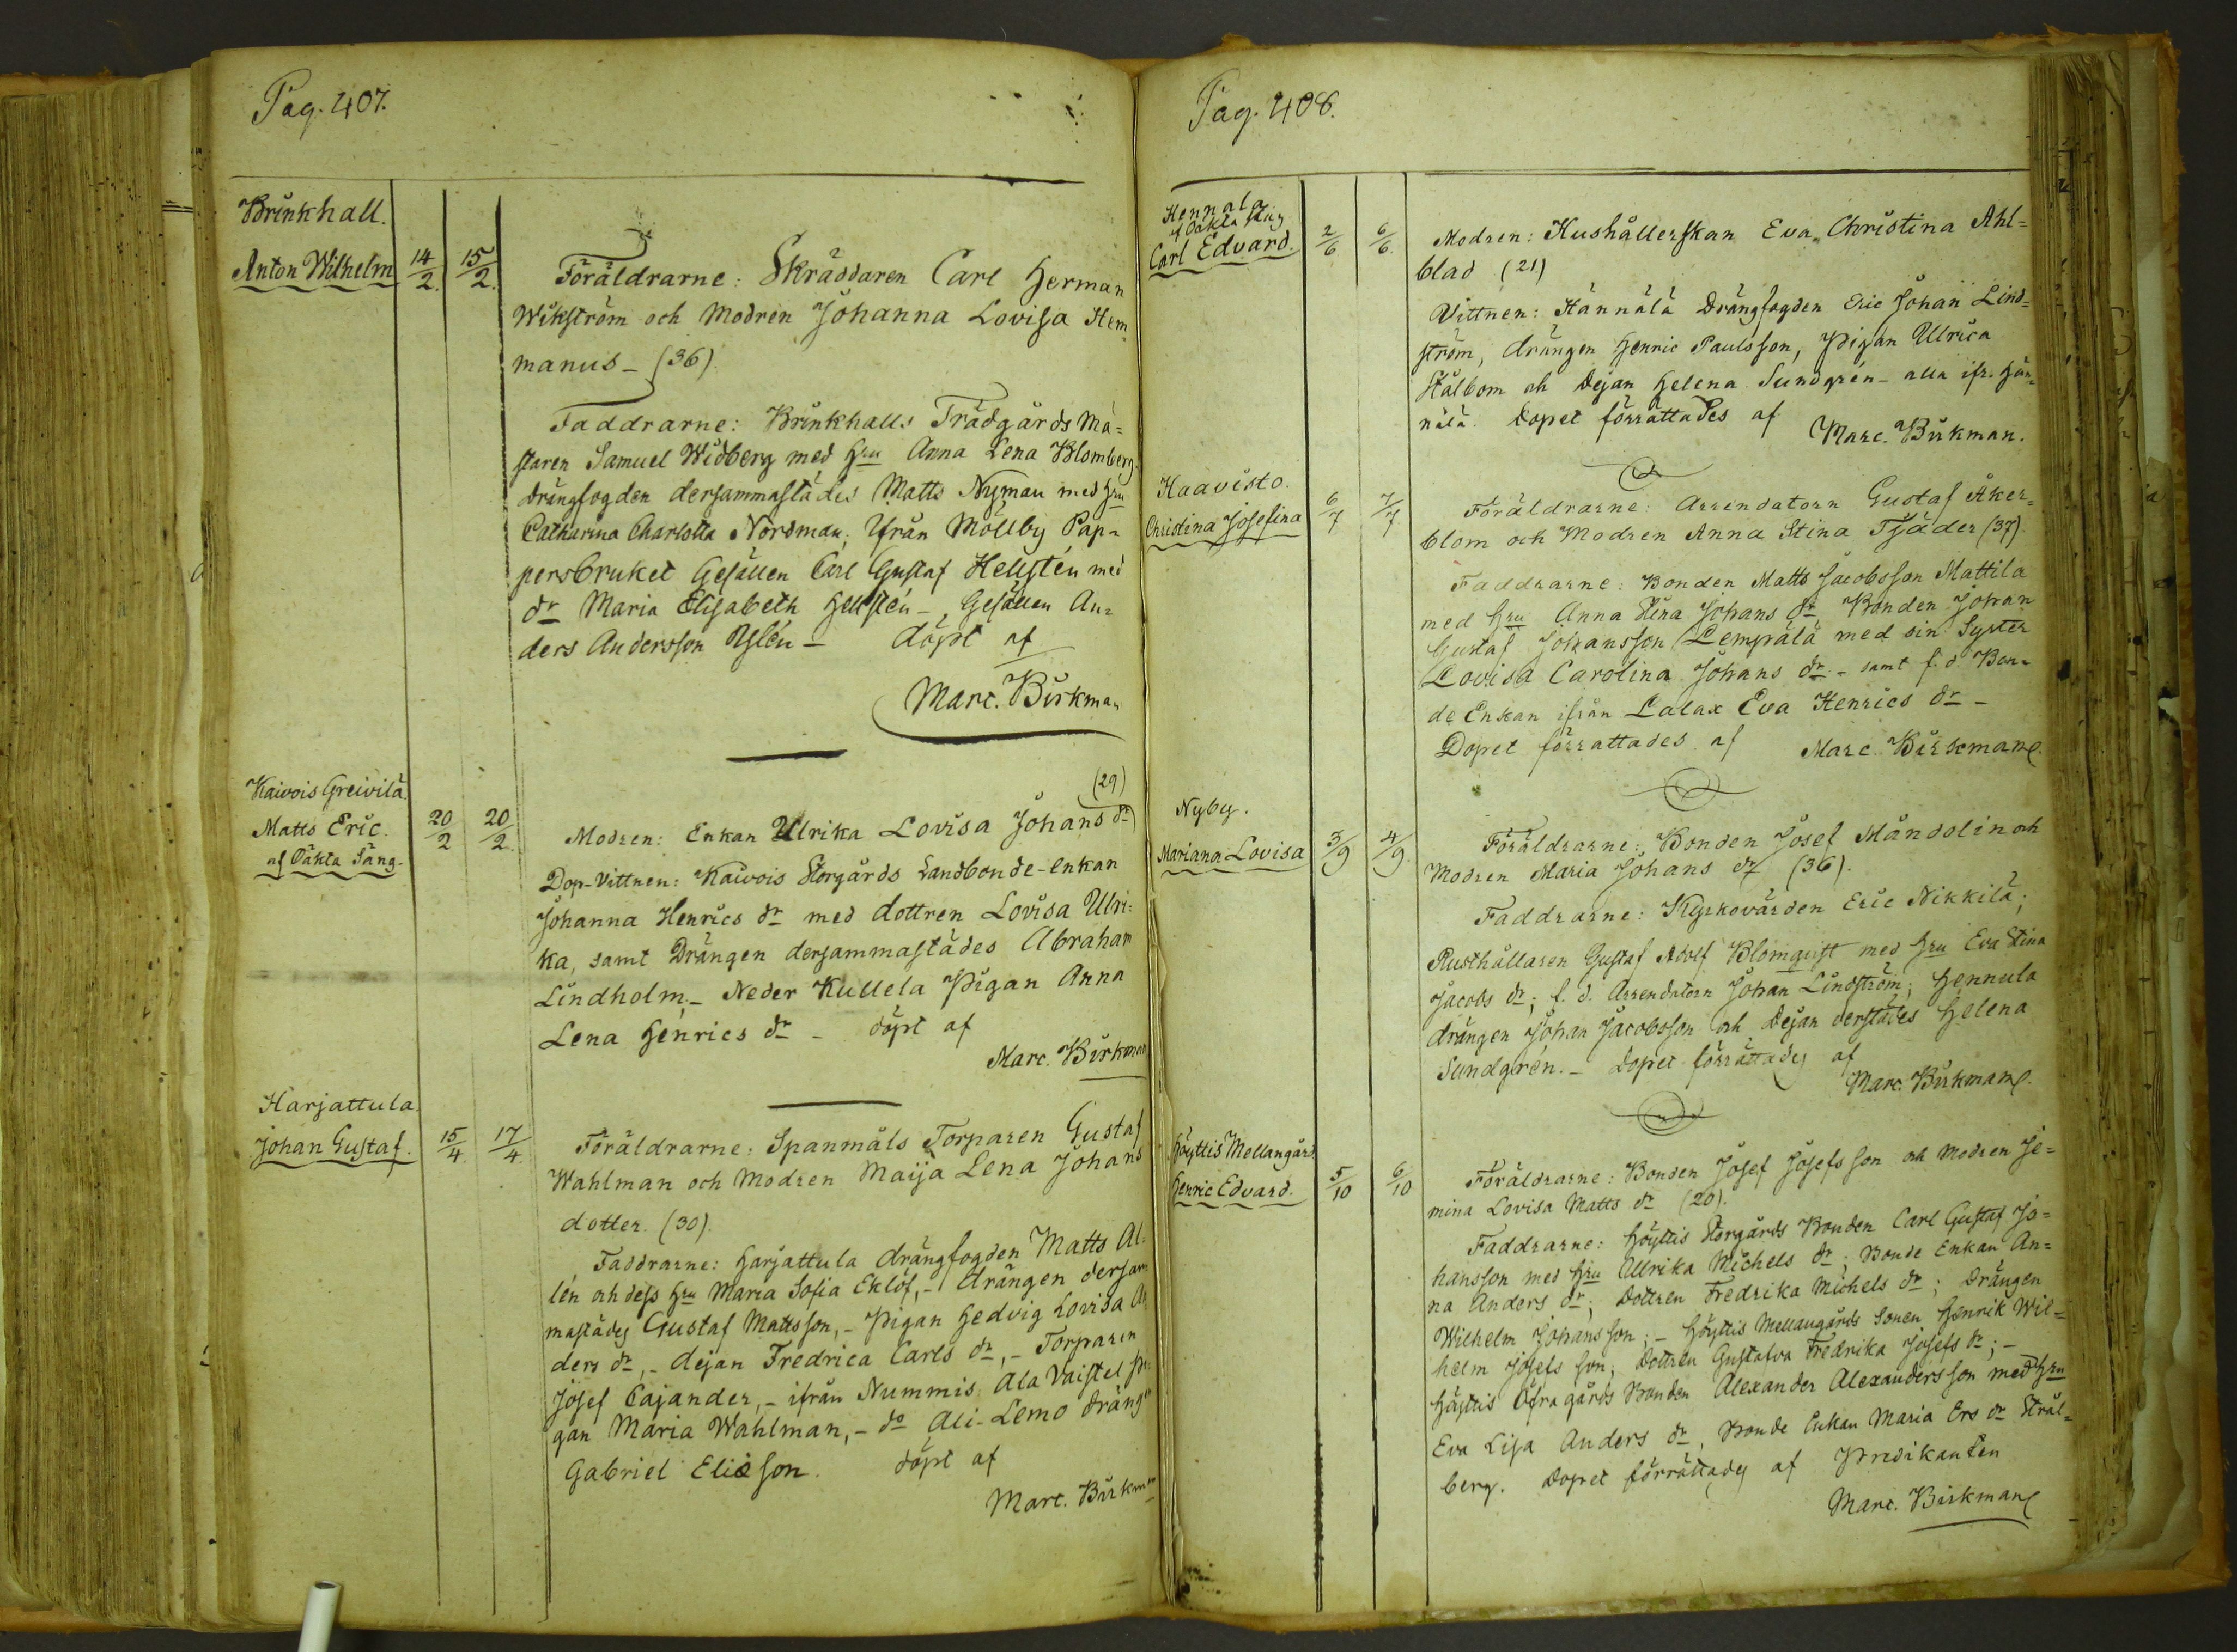 Pag. 407.
Brinkhall.
Anton Wilhelm 14/2. 15/2.
Föräldrarne: Skräddaren Carl Herman
Wikström och Modren Johanna Lovisa Hem
manus - (36).
Faddrarne: Brinkhalls Trädgårds Mä=
staren Samuel Widberg med Hru Anna Lena Blomberg.
drängfogden dersammastädes Matts Nyman med Hru
Catharina Charlotta Nordman, Ifrån Möllby Pap=
persbruket Gesällen Carl Gustaf Hellstén med
dr Maria Elisabeth Hellstén -, Gesällen An=
ders Andersson - döpt af
Marc. Birkman
Kaivois Greivilä.
Matts Eric. 20/2 20/2.
af Oäkta Säng.
(29)
Modren: Enkan Ulrika Lovisa Johans dr
Dop-Vittnen: Kaivois Storgårds Landbonde-enkan
Johanna Henrics dr med dottren Lovisa Ulri=
ka, samt Drängen dersammastädes Abraham
Lindholm,- Neder Kullela Pigan Anna
Lena Henrics dr - döpt af
Marc. Birkman
Harjattula.
Johan Gustaf. 15/4. 17/4.
Föräldrarne: Spanmåls Torparen Gustaf
Wahlman och Modren Maija Lena Johans
dotter. (30).
Faddrarne: Harjattula drängfogden Matts Al=
lén och dess Hru Maria Sofia Eklöf,- drängen dersam
mastädes Gustaf Mattsson,- Pigan Hedvig Lovisa An
ders dr,- dejan Fredrica Carls dr,- Torparen
Josef Cajander,- ifrån Nummis Ala Vaistel pi
gan Maria Wahlman,- do Ali-Lemo dräng
Gabriel Eliæson. döpt af
Marc. Birkman
Pag. 408.
Hennala
af Oäkta säng
Carl Edvard. 2/6 6/6.
Modren: Hushållerskan Eva Christina Ahl=
blad (21)
Vittnen: Hännälä Drängfogden Eric Johan Lind=
ström, drängen Henric Paulsson, Pigan Ulrica
Stålbom och Dejan Helena Sundgrén - alla ifr. Hän=
nälä. Dopet förrättades af
Marc. Birkman.
Haavisto.
Christina Josefina 6/7 7/7
Föräldrarne: Arrendatorn Gustaf Åker=
blom och Modren Anna Stina Tjäder (37).
Faddrarne: Bonden Matts Jacobsson Mattila
med Hru Anna Stina Johans dr, Bonden Johan
Gustaf Johansson Lempälä med sin Syster
Lovisa Carolina Johans dr - samt f.d. Bon=
de Enkan ifrån Lalax Eva Henrics dr -
Dopet förrattades af Marc. Birkman.
Nyby.
Mariana Lovisa 3/9 4/9.
Föräldrarne: Bonden Josef Mandolin och
Modren Maria Johans dr (36).
Faddrarne: Kyrkovärden Eric Nikkilä;
Rusthållaren Gustaf Adolf Blomqvist med Hru Eva Stina
Jacobs dr; f.d. Arrendatorn Johan Lindström; Hennula
drängen Johan Jacobsson och Dejan derstädes Helena
Sundgrén. - Dopet förrättades af
Marc. Birkman.
Höyttis Mellangård
Henric Edvard. 5/10 6/10
Föräldrarne: Bonden Josef Josefs son och Modren Je=
mina Lovisa Matts dr (20).
Faddrarne: Höyttis Storgårds Bonden Carl Gustaf Jo=
hansson med Hru Ullrika Michels dr; Bonde Enkan An=
na Anders dr; Dottren Fredrika Michels dr; Drängen
Wilhelm Johansson; - Höyttis Mellangårds Sonen Henrik Wil=
helm Josefs son; Dottren Gustafva Fredrika Josefs dr; -
Höyttis Öfragårds Bonden Alexander Alexandersson med Hru
Eva Lisa Anders dr, Bonde Enkan Maria Ers dr Strål=
berg. Dopet förrättades af Predikanten
Marc. Birkman